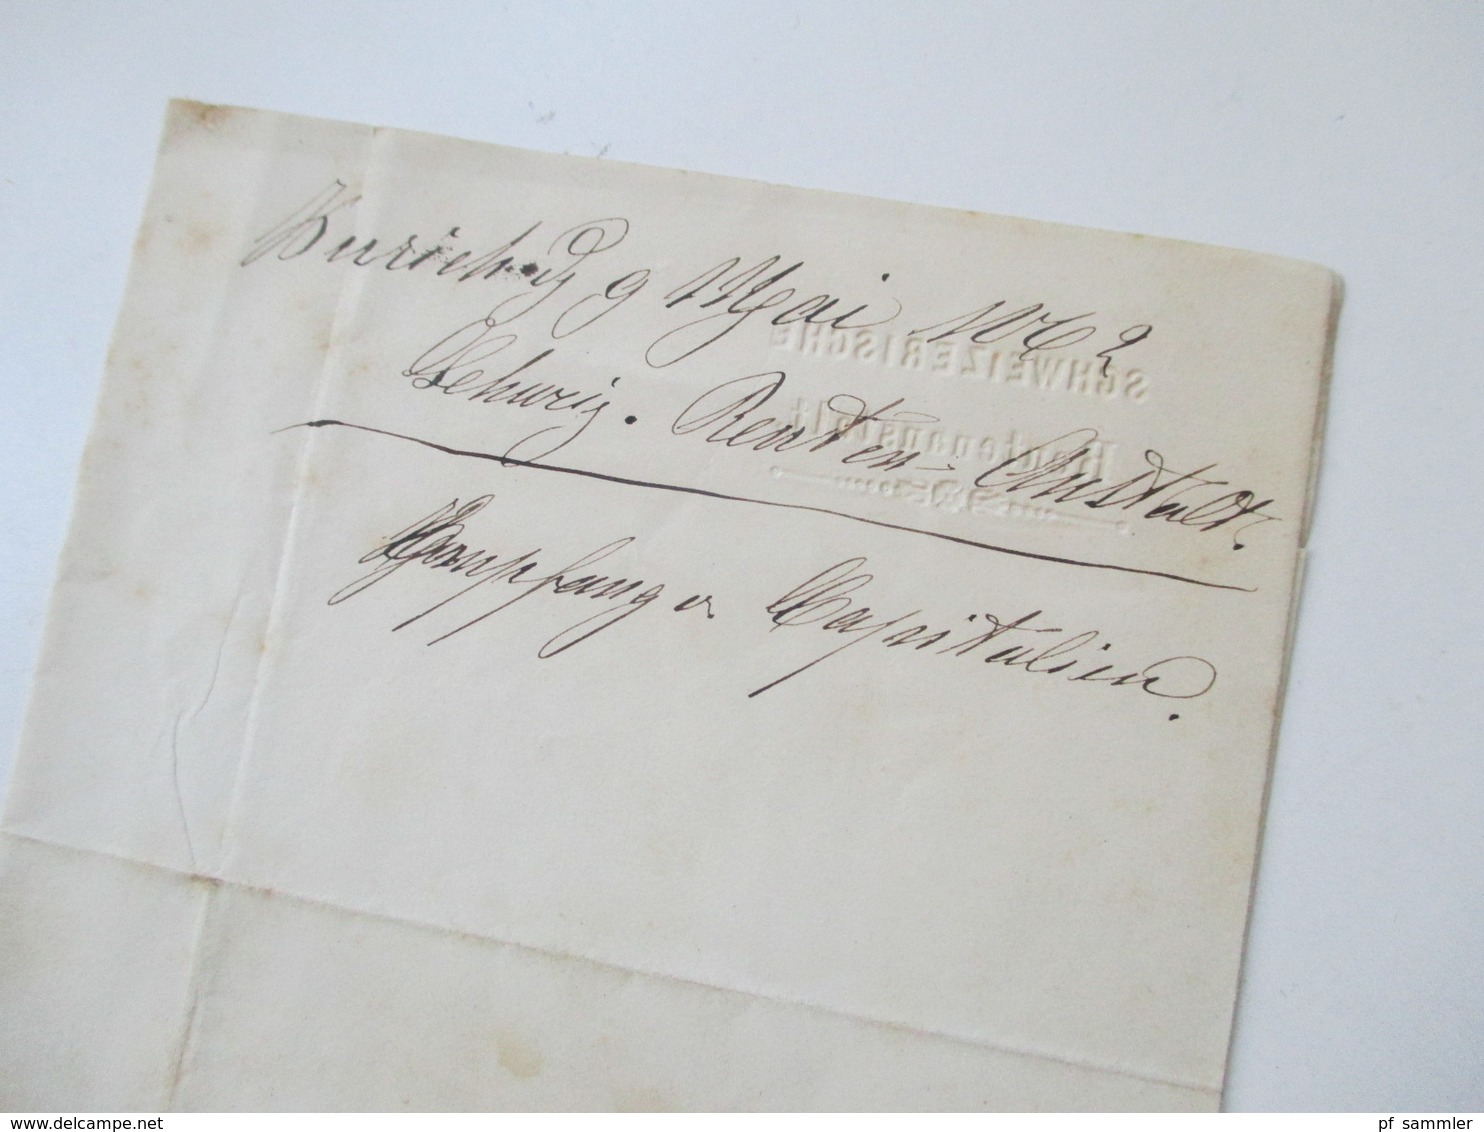 Zürich d 9 Mai 1862
Schweiz. Renten-Anstalt.
SCHWEIZERISCHE
Rentenanstalt
Empfang v Capitalien.
delcampe.net
pf_sammler